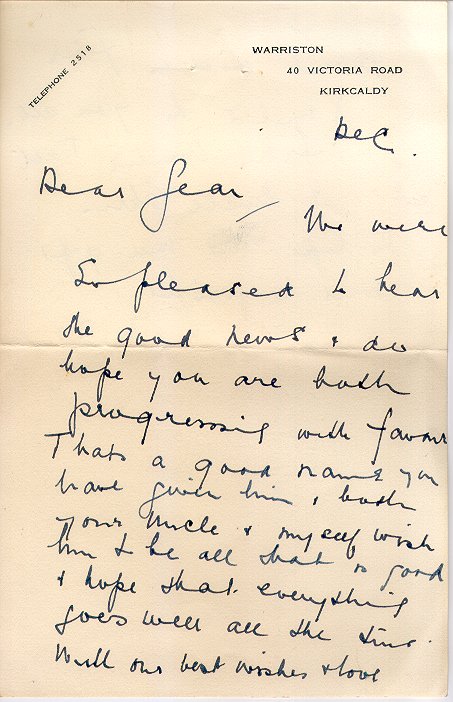 TELEPHONE 2518
WARRISTON
40 VICTORIA ROAD
KIRKCALDY
Dec.
Dear Jean
We were
So pleased to hear
the good news & do
hope you are both
progressing with favour
Thats a good name you
have given him & both
your Uncle & myself wish
him to be all that is good
& hope that everything
goes well all the time.
With our best wishes & love